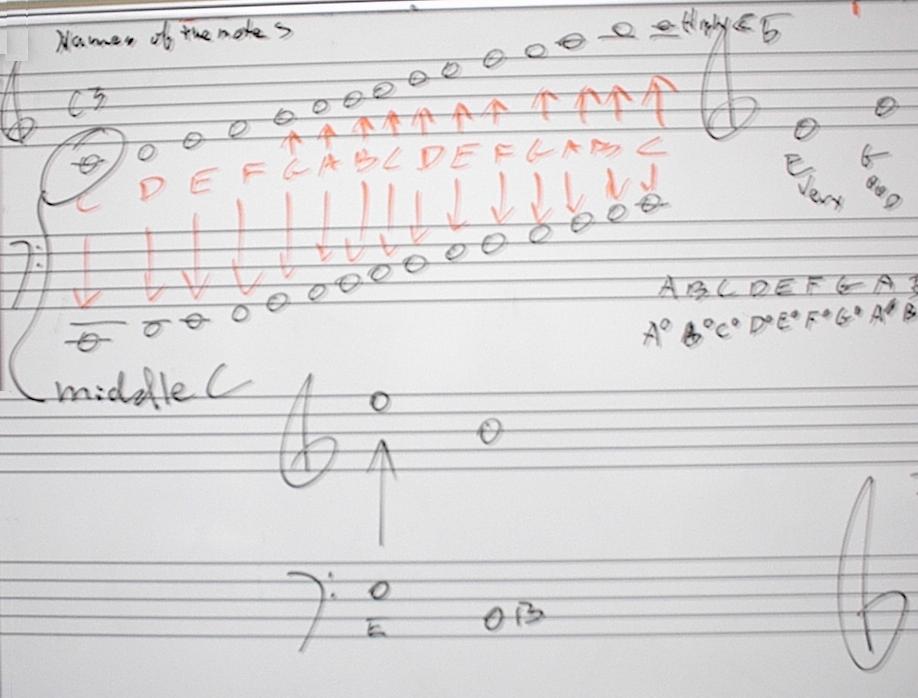 Names of the notes
High C 5
C3
C D E F G A B C D E F G A B C
E G
Very
A B C D E F G A B
A° B° C° D° E° F° G° A° B
middle C
E
B